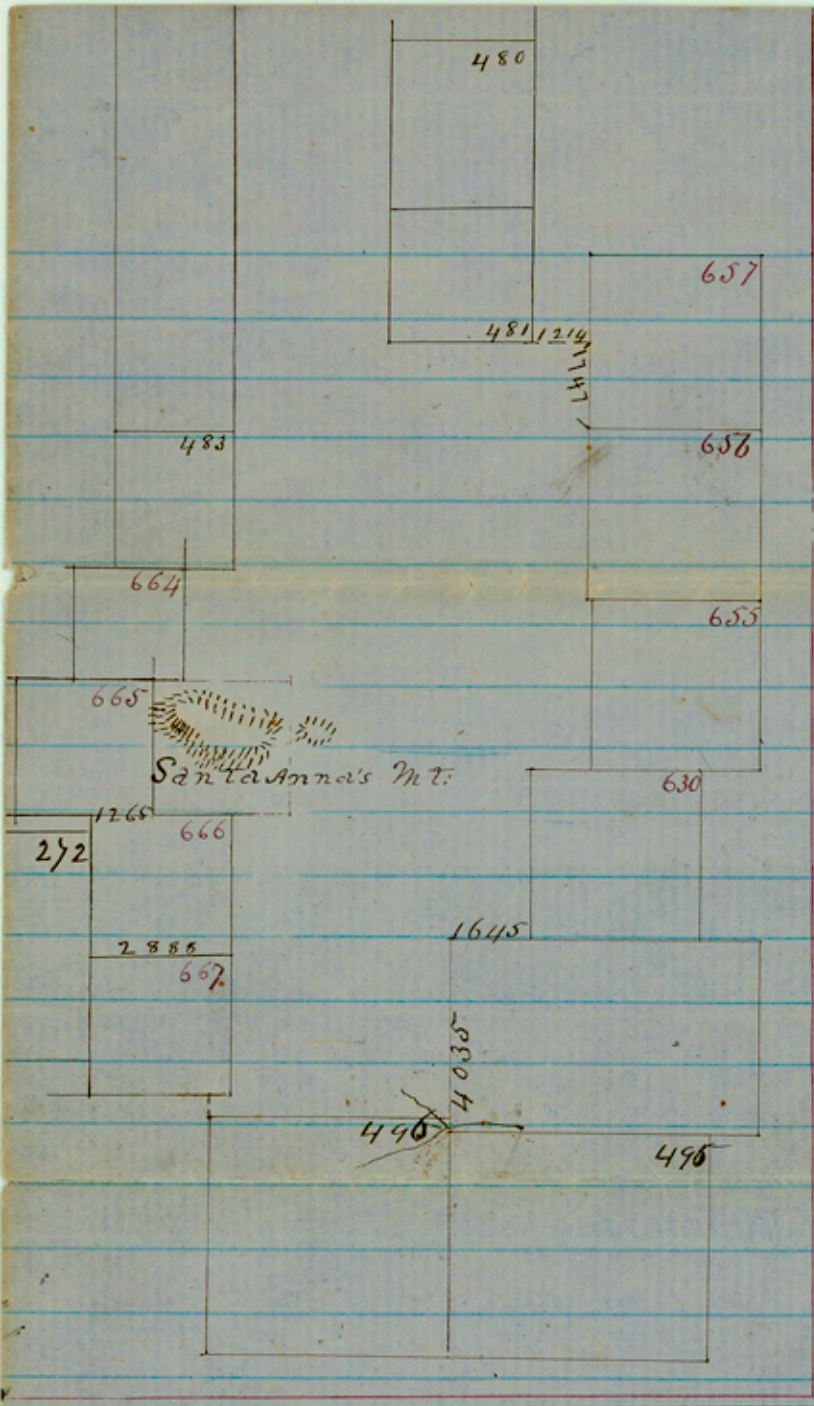 480
657
481 1214
1747
483
656
664
655
665
Santa Anna's Mt.
630
1265
666
272
1645
2888
667
4035
496
495